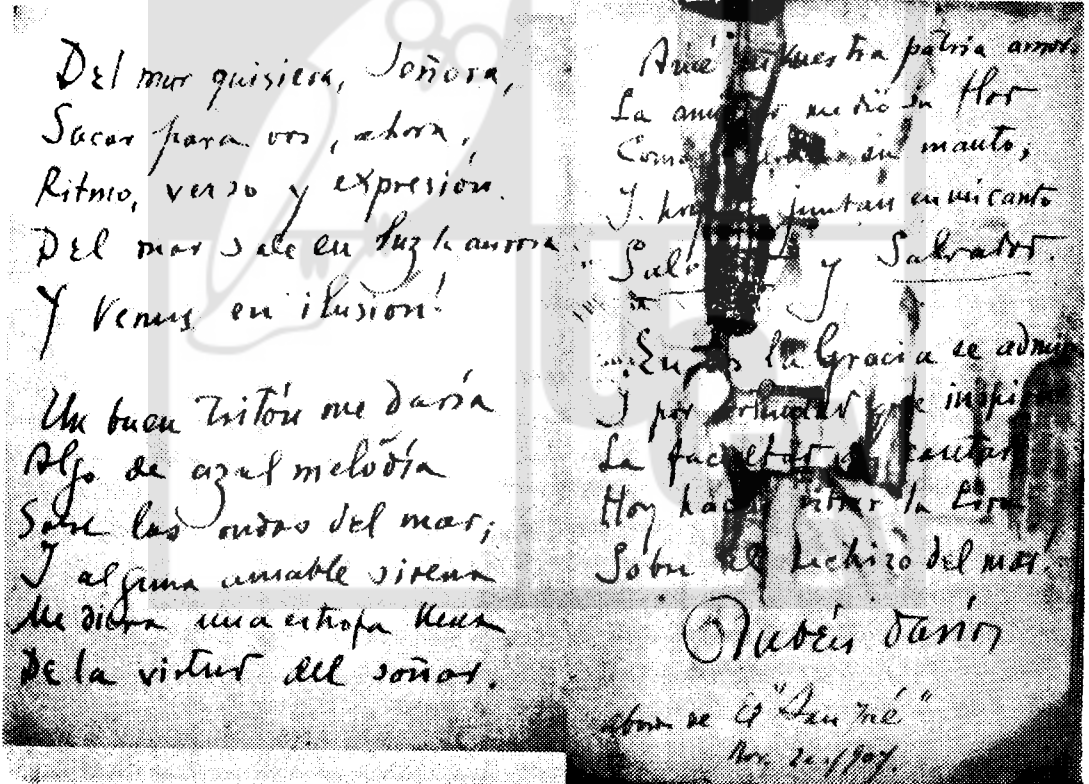 Del mar quisiera, Señora,
Sacar para vos, ahora,
Ritmo, verso y expresión.
Del mar sale en luz la aurora
Y Venus en ilusion!
Un buen tritón me daría
Algo de azul melodía
Sobre las ondas del mar;
Y alguna amable sirena
Me diera una estrofa llena
De la virtud del soñar.
Amé en vuestra patria amor.
La amistad me dió su flor
Como en su manto,
Y hoy se juntan en mi canto
y Salvador.
En la Gracia se admira
Y por que inspira
La facultad de cantar
Hoy hacer vibrar la Lira
Sobre el hechizo del mar!
Rubén Darío
abordo de El "San José"
Nov. 1907.